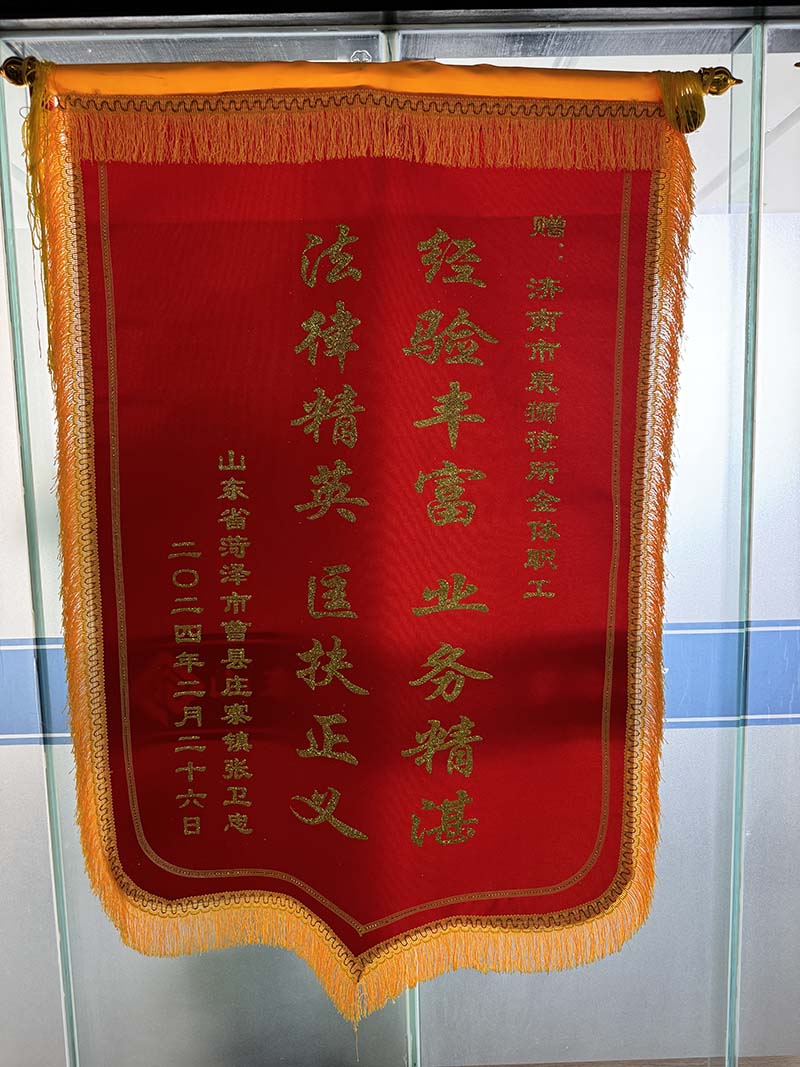 赠：济南市泉狮律所全体职工
经验丰富 业务精湛
法律精英 匡扶正义
山东省菏泽市曹县庄寨镇张卫忠
二〇二四年二月二十六日